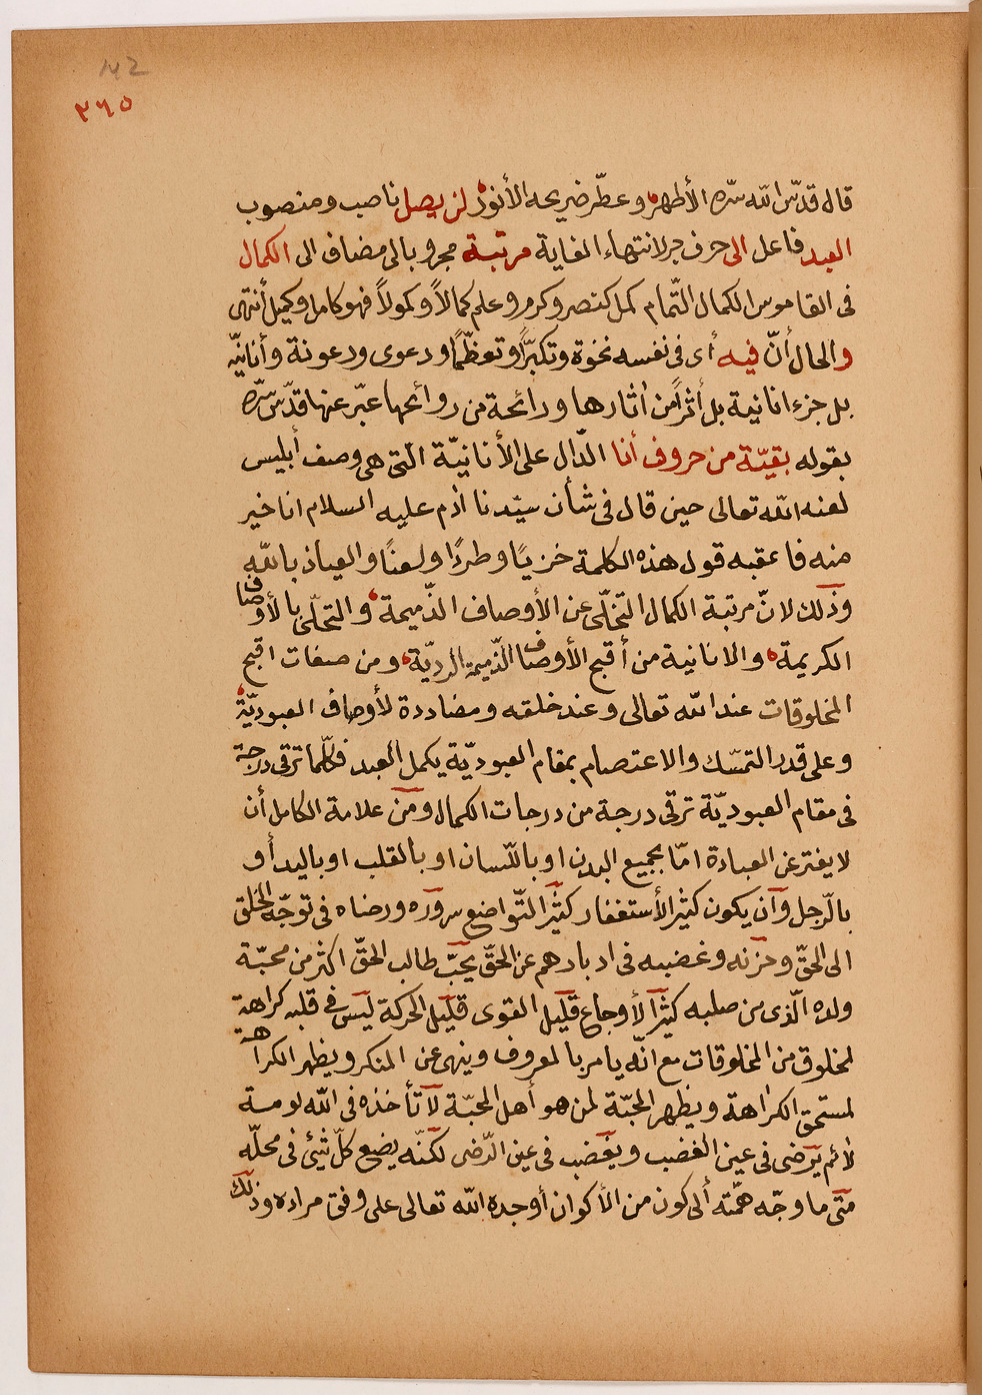 ٣٦٥
قال قدّس الله سرّه الأطهر، وعطّر ضريحه الأنور، لن يصل ناصب ومنصوب
العبد فاعل الى حرف جر لانتهاء الغاية مرتبة مجرور بالى مضاف الى الكمال
فى القاموس الكمال التّمام كمل كنصر وكرم وعلم كمالاً وكمولاً فهو كامل وكميل أنتهى
والحال أنّ فيه أى فى نفسه نخوة وتكبّراً وتعظّماً ودعوى ورعونة وأنانيّه
بل جزء انانية بل أثراً من اثارها ورائحة من روائحها عبّر عنها قدّس سرّه
بقوله بقيّة من حروف أنا الدّال على الأنانيّة الّتى هى وصف أبليس
لعنه الله تعالى حين قال فى شأن سيّدنا ادم عليه السلام انا خير
منه فاعقبه قول هذه الكلمة خزيًا وطردًا ولعنًا والعياذ بالله
وذلك لانّ مرتبة الكمال التخلّى عن الأوصاف الذّميمة، والتحلّى بالأوصاف
الكريمة، والانانية من أقبح الأوصاف الذّميمة الرديّة، ومن صفات اقبح
المخلوقات عند الله تعالى وعند خلقه ومضاددة لأوصاف العبوديّة،
وعلى قدر التمسّك والاعتصام بمقام العبوديّة يكمل العبد فكلّما ترقى درجة
فى مقام العبوديّة ترقى درجة من درجات الكمال ومن علامة الكامل أن
لا يفتر عن العبادة امّا بجميع البدن او باللّسان او بالقلب او باليد أو
بالرّجل وان يكون كثير الأستغفار كثير التّواضع سروره ورضاه فى توجّه الخلق
الى الحقّ وحزنه وغضبه فى ادبارهم عن الحقّ يحبّ طالب الحقّ اكثر من محبّة
ولده الّذى من صلبه كثير الأوجاع قليل القوى قليل الحركة ليس فى قلبه كراهة
لمخلوق من المخلوقات مع انّه يامر بالمعروف وينهى عن المنكر ويظهر الكراهة
لمستحق الكراهة ويظهر المحبّة لمن هو أهل المحبّة لا تأخذه فى الله لومة
لائم يرضى فى عين الغضب ويغضب فى عين الرّضى لكنّه يضع كلّ شئ فى محلّه
متى ما وجّه همّته ألى كون من الأكوان أوجده الله تعالى على وفق مراده وذلك